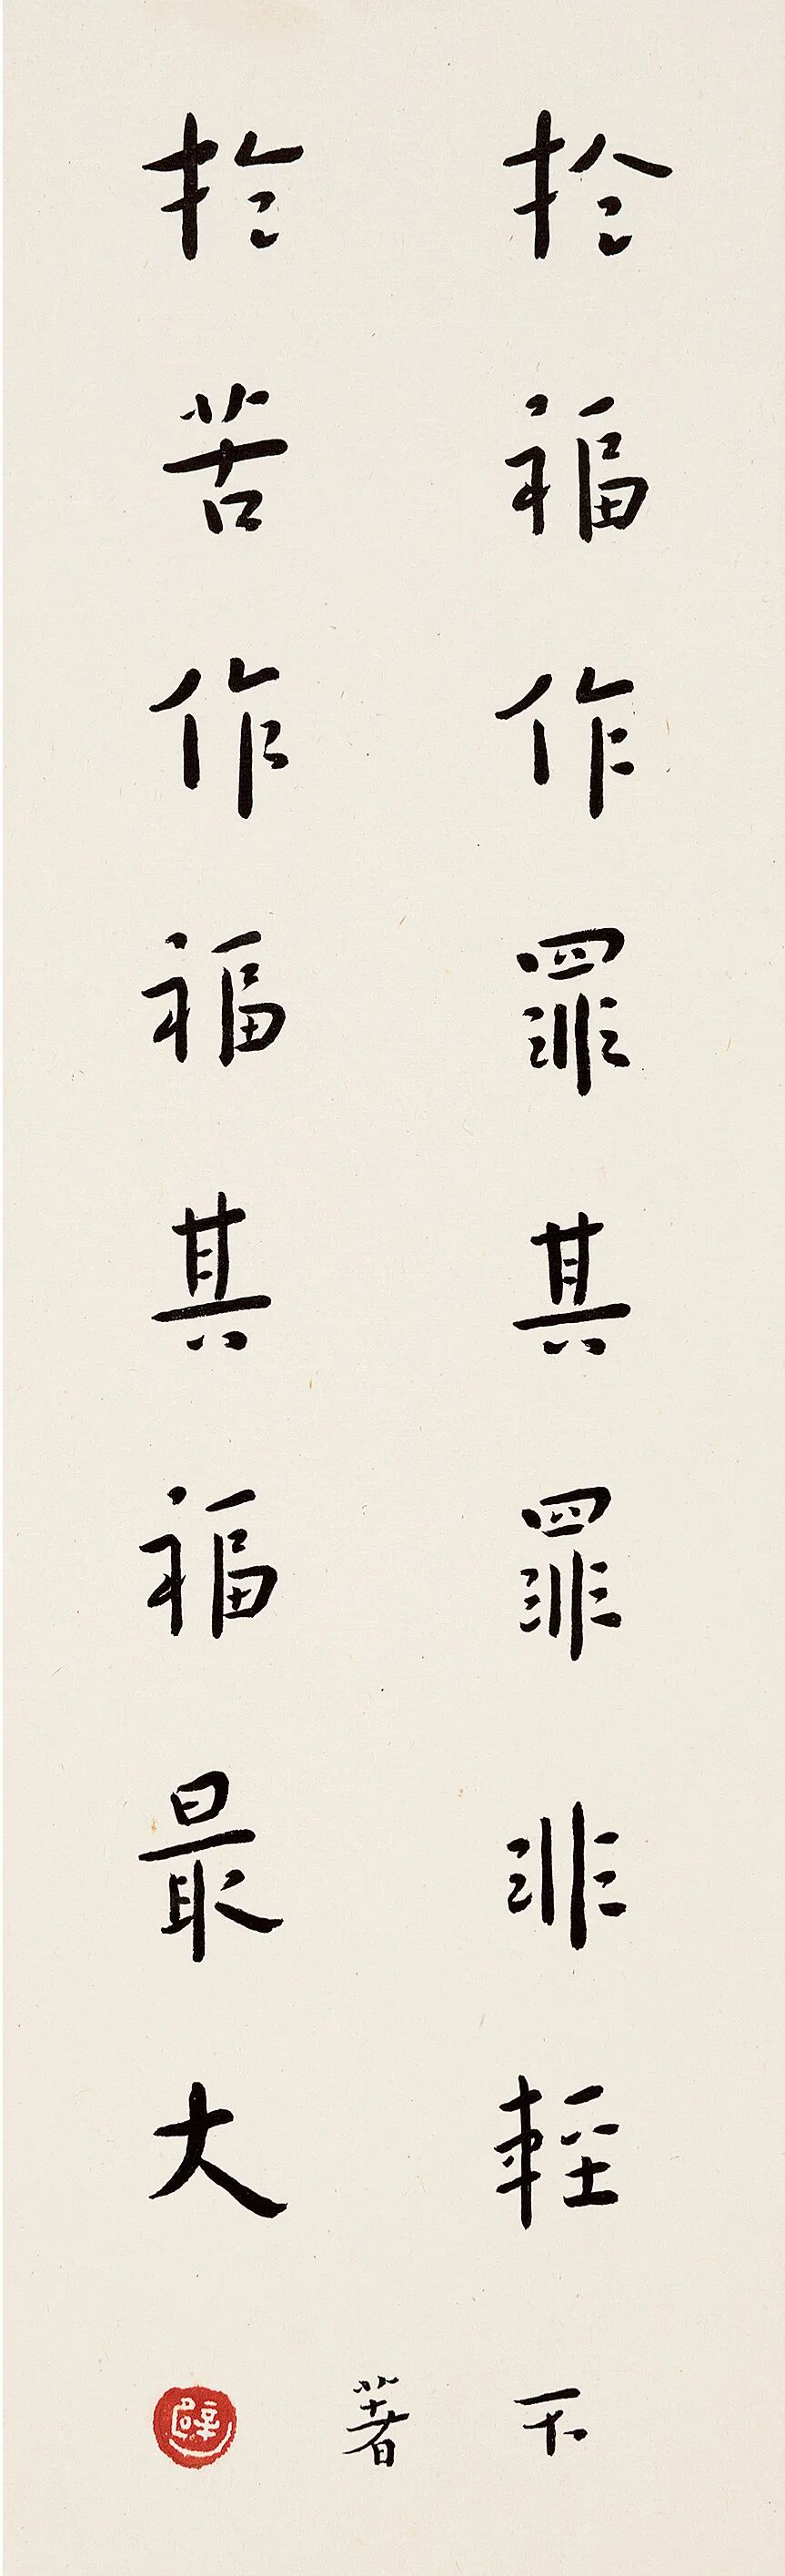 扵福作罪其罪非輕
扵苦作福其福最大
不著